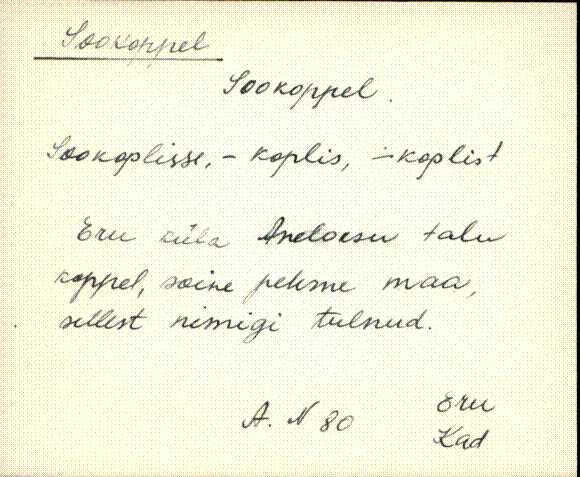 Sookoppel
Sookoppel.
Sookoplisse, - koplis, -koplist
Eru küla talu
koppel, soine pehme maa,
sellest nimigi tulnud.
A. N 80
Eru
Kad